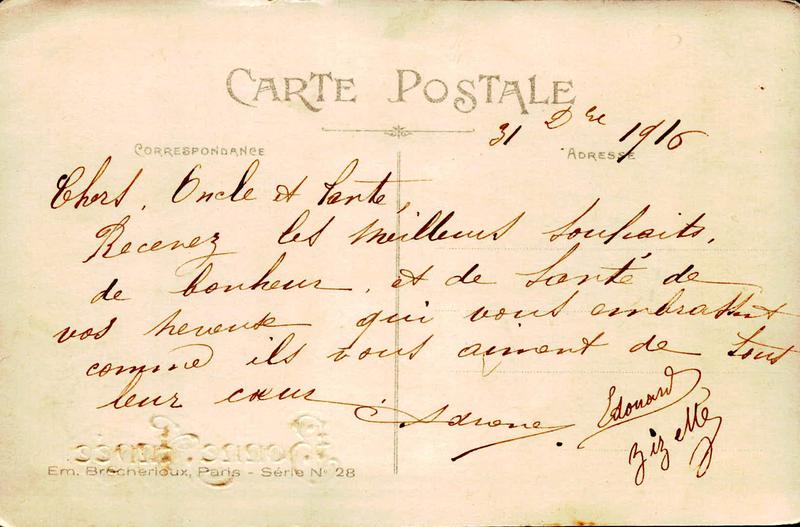 CARTE POSTALE
31 Dbre 1916
CORRESPONDANCE
ADRESSE
Chers, Oncle et Tante,
Recevez les meilleurs souhaits,
de bonheur, et de Santé de
vos neveux qui vous embrassent
comme ils vous aiment de tous
leur cœur
Edouard
Zizette
Bonne Année
Em. Brécherioux, Paris - Série No 28